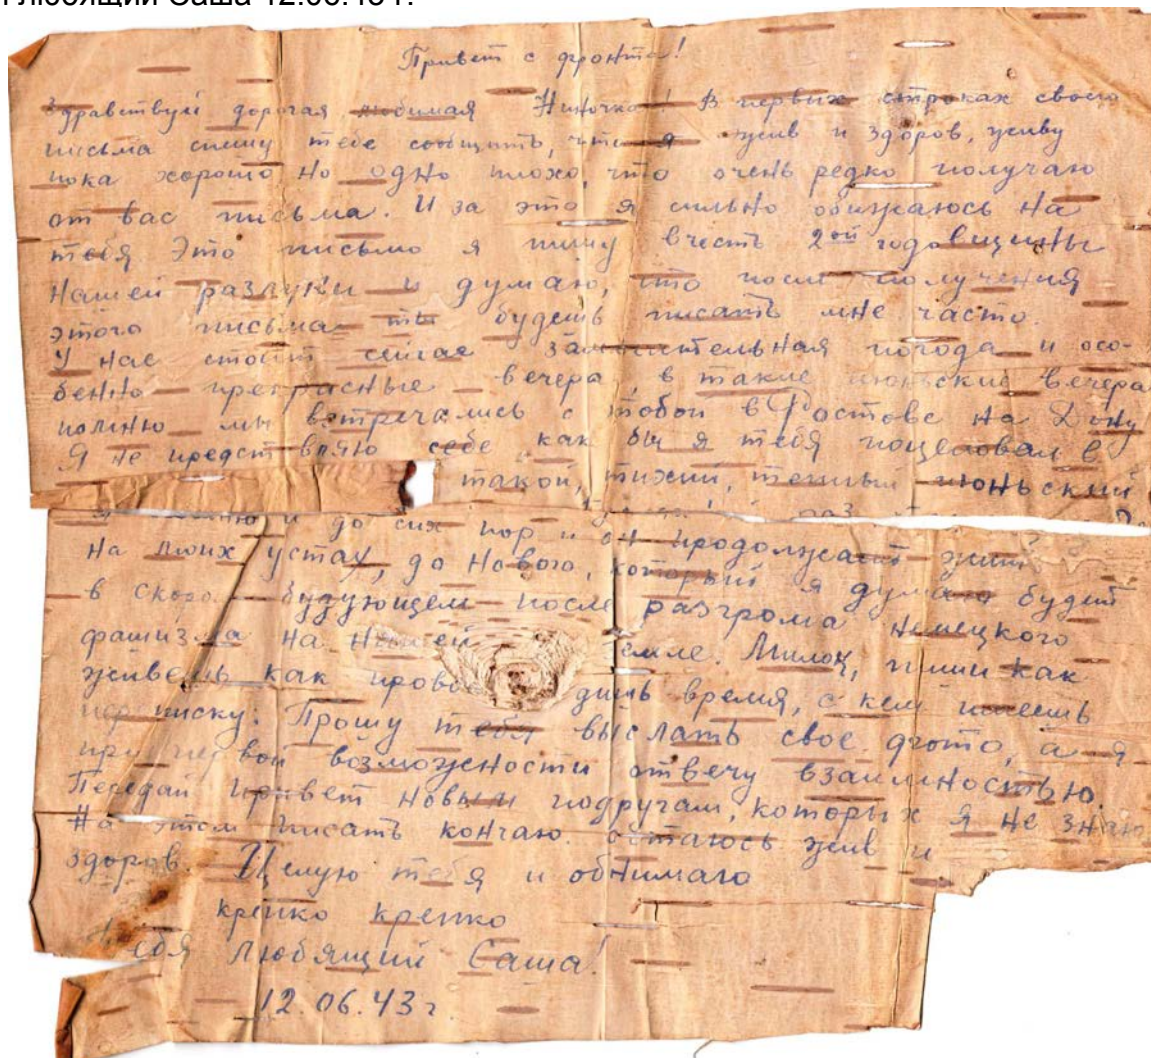 любящий Саша 12.06.43 г.
Привет с фронта!
Здравствуй дорогая, любимая Ниночка! В первых строках своего
письма спешу тебе сообщить, что я жив и здоров, живу
пока хорошо но одно плохо, что очень редко получаю
от вас письма. И за это я сильно обижаюсь на
тебя. Это письмо я пишу в честь 2ой годовщины
нашей разлуки и думаю, что после получения
этого письма ты будешь писать мне часто.
У нас стоит сейчас замечательная погода и осо-
бенно прекрасные вечера, в такие июньские вечера
помню мы встречались с тобой в Ростове на Дону
Я не предст вляю себе как бы я тебя поцеловал в
такой, тихий, темный июньский
раз
и до сих пор и он продолжает жить
на моих устах, до нового, который я думаю будет
в скоро будующем после разгрома немецкого
фашизма на нашей земле. Милок, пиши как
живешь как прово дишь время, с кем имеешь
переписку. Прошу тебя выслать свое фото, а я
при первой возможности отвечу взаимностью.
Передай привет новым подругам, которых я не знаю
На этом писать кончаю. остаюсь жив и
здоров. Целую тебя и обнимаю
крепко крепко
Тебя любящий Саша!
12.06.43 г.